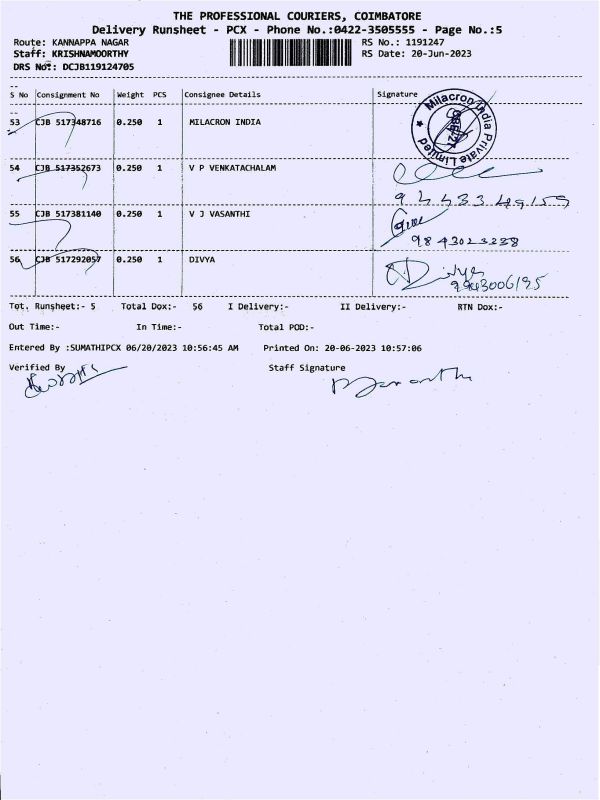 THE PROFESSIONAL COURIERS, COIMBATORE
Delivery Runsheet - PCX - Phone No.:0422-3505555 - Page No.:5
Route: KANNAPPA NAGAR RS No.: 1191247
Staff: KRISHNAMOORTHY RS Date: 20-Jun-2023
DRS No.: DCJB119124705
S No Consignment No Weight PCS Consignee Details Signature
53 CJB 517348716 0.250 1 MILACRON INDIA
Milacron India Private Limited
54 CJB 517352673 0.250 1 V P VENKATACHALAM
9443349159
55 CJB 517381140 0.250 1 V J VASANTHI
9843023238
56 CJB 517292057 0.250 1 DIVYA
Divya
9943006195
Tot. Runsheet:- 5 Total Dox:- 56 I Delivery:- II Delivery:- RTN Dox:-
Out Time:- In Time:- Total POD:-
Entered By :SUMATHIPCX 06/20/2023 10:56:45 AM Printed On: 20-06-2023 10:57:06
Verified By Staff Signature